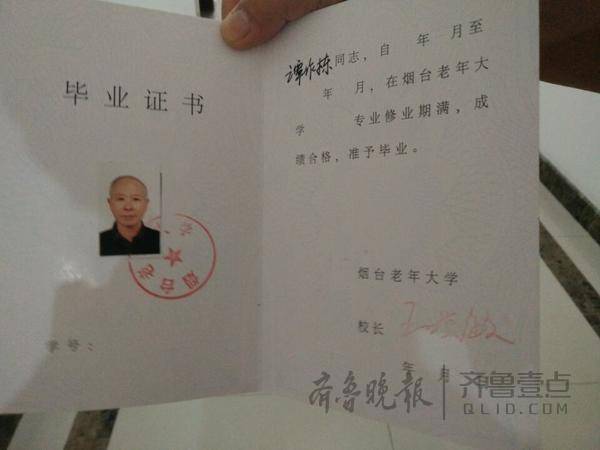 毕业证书
学号：
谭作栋同志，自 年 月至
年 月，在烟台老年大
学 专业修业期满，成
绩合格，准予毕业。
烟台老年大学
校长
年 月
齐鲁晚报 齐鲁壹点
QLID.COM